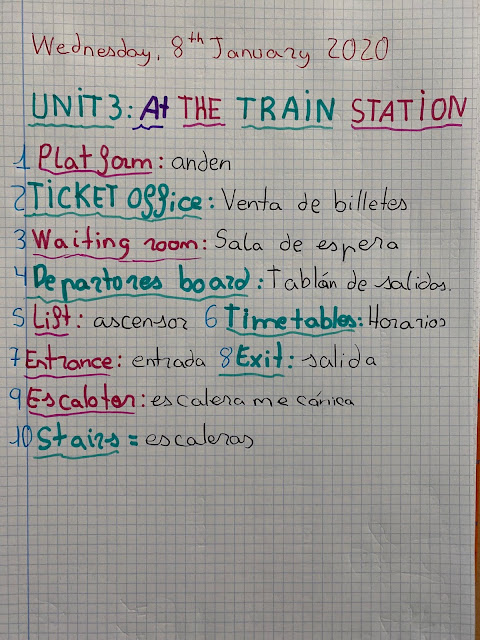 Wednesday, 8th January 2020
UNIT 3: At THE TRAIN STATION
1 Platform: anden
2 TICKET Office: Venta de billetes
3 Waiting room: Sala de espera
4 Departores board: Tablán de salidas.
5 Lift: ascensor 6 Timetables: Horarios
7 Entrance: entrada 8 Exit: salida
9 Escalator: escalera mecánica
10 Stairs = escaleras